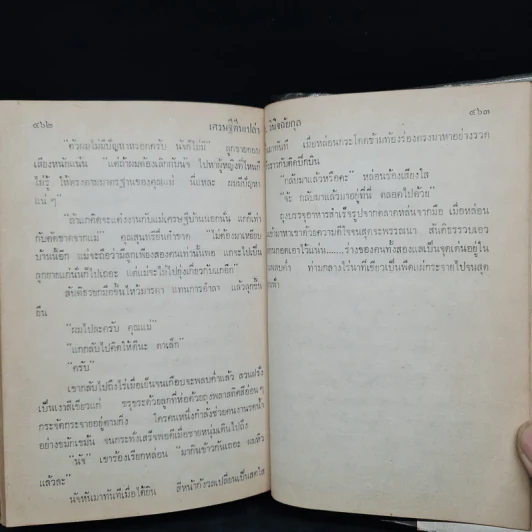 ๔๖๒ เศรษฐีตีนเปล่า
"ตัวผมไม่มีปัญหาหรอกครับ นัจก็ไม่มี" ลูกชายตอบ
เสียงหนักแน่น "แต่ถ้าผมต้องเลิกกับนัจ ไปหาผู้หญิงที่ไหนก็
ไม่รู้ ให้ตรงตามมาตรฐานของคุณแม่ นี่แหละ ผมมีปัญหา
แน่ ๆ"
"ถ้าแกคิดจะแต่งงานกับแม่เศรษฐีบ้านนอกนั่น แกก็เท่า
กับตัดขาดจากแม่" คุณสุนทรียื่นคำขาด "ไม่ต้องมาเหยียบ
บ้านนี้อีก แม่จะถือว่ามีลูกเพียงสองคนเท่านั้นพอ แกจะไปเป็น
ลูกยายแก่นั่นก็ไปเถอะ แต่แม่จะไม่ไปยุ่งเกี่ยวกับแกอีก"
สันติธวยกมือขึ้นไหว้มารดา แทนการอำลา แล้วลุกขึ้น
ยืน
"ผมไปละครับ คุณแม่"
"แกกลับไปคิดให้ดีนะ ตาเล็ก"
"ครับ"
เขากลับไปถึงไร่เมื่อเย็นจนเกือบจะพลบค่ำแล้ว สวนฝรั่ง
เป็นเงาสีเขียวแก่ ขรุขระด้วยลูกที่ห่อด้วยถุงพลาสติคสีอ่อน ๆ
กระจัดกระจายอยู่ตามกิ่ง ใครคนหนึ่งกำลังช่วยคนงานรดน้ำ
อย่างขมักเขม้น จนกระทั่งเสร็จพอดีเมื่อชายหนุ่มเดินไปถึง
"นัจ" เขาร้องเรียกหล่อน "มากินข้าวกันเถอะ ผมหิว
แล้วละ"
นัจหันมาทันทีเมื่อได้ยิน สีหน้ากังวลเปลี่ยนเป็นสดใส
วินิจฉัยกุล ๔๖๓
ทันที เมื่อหล่อนกระโดดข้ามท้องร่องตรงมาหาอย่างรวด
"กลับมาแล้วหรือคะ" หล่อนร้องเสียงใส
"จ้ะ กลับมาแล้วมาอยู่ที่นี่ ตลอดไปด้วย"
ถุงบรรจุอาหารสำเร็จรูปจากตลาดหล่นจากมือ เมื่อหล่อน
มาหาเขาด้วยความดีใจจนสุดจะพรรณนา สันติธรรวบเอว
กอดเอาไว้แน่น......ร่างของคนทั้งสองแลเป็นจุดเด่นอยู่ใน
ท่ามกลางไร่นาที่เขียวเป็นพืดแผ่กระจายไปจนสุด